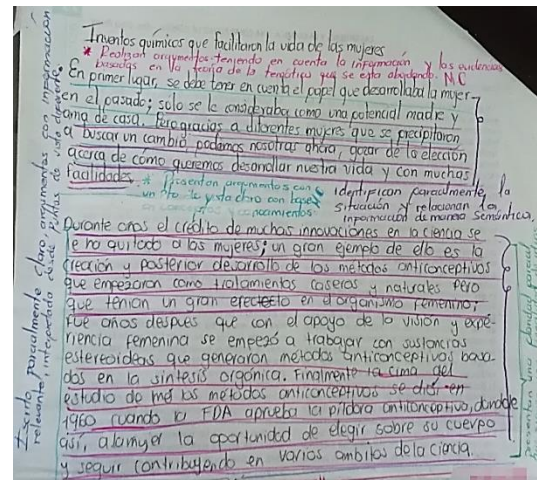 Inventos químicos que facilitaron la vida de las mujeres
* Realizan argumentos teniendo en cuenta la información y las evidencias
basadas en la teoría de la temática que se esta abordando. MC
En primer lugar, se debe tener en cuenta el papel que desarrollaba la mujer
en el pasado; solo se le consideraba como una potencial madre y
ama de casa. Pero gracias a diferentes mujeres que se precipitaron
a buscar un cambio, podemos nosotras ahora, gozar de la elección
acerca de como queremos desarrollar nuestra vida y con muchas
facilidades. * Presentan argumentos con
un de vista claro con base
en conceptos y conocimientos
Identifican parcialmente, la
situación y relacionan la
información de manera semántica.
Durante años el crédito de muchas innovaciones en la ciencia se
le ha quitado a las mujeres; un gran ejemplo de ello es la
creación y posterior desarrollo de los métodos anticonceptivos
que empezaron como tratamientos caseros y naturales pero
que tenían un gran efecto en el organismo femenino;
fue años después que con el apoyo de la visión y expe-
riencia femenina se empezó a trabajar con sustancias
estereoideas que generaron métodos anticonceptivos basa-
dos en la síntesis orgánica. Finalmente la cima del
estudio de los métodos anticonceptivos se dió en
1960 cuando la FDA aprueba la píldora anticonceptiva, dandole
así, a la mujer la oportunidad de elegir sobre su cuerpo
y seguir contribuyendo en varios ambitos de la ciencia.
Escrito parcialmente claro, argumentos con información
relevante, interpretado desde puntos de vista
presentan una claridad parcial